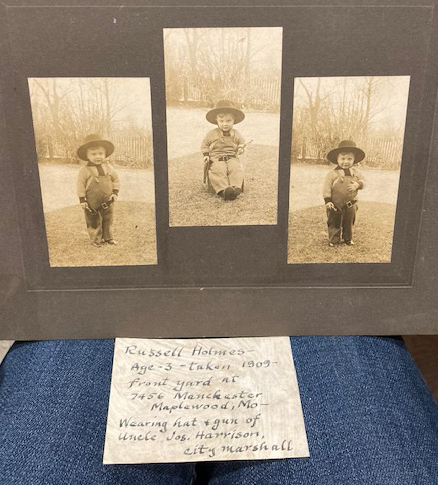 Russell Holmes-
Age-3-taken 1909-
front yard at
7456 Manchester
Maplewood, Mo-
Wearing hat & gun of
Uncle Jos. Harrison,
city marshall